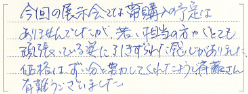 今回の展示会では、購入の予定は
ありませんでしたが、若い担当の方がとても
頑張っている姿に引きずられた感じがありました。
価格はずい分と努力してくれたようで、斉藤さん
有難うございました。